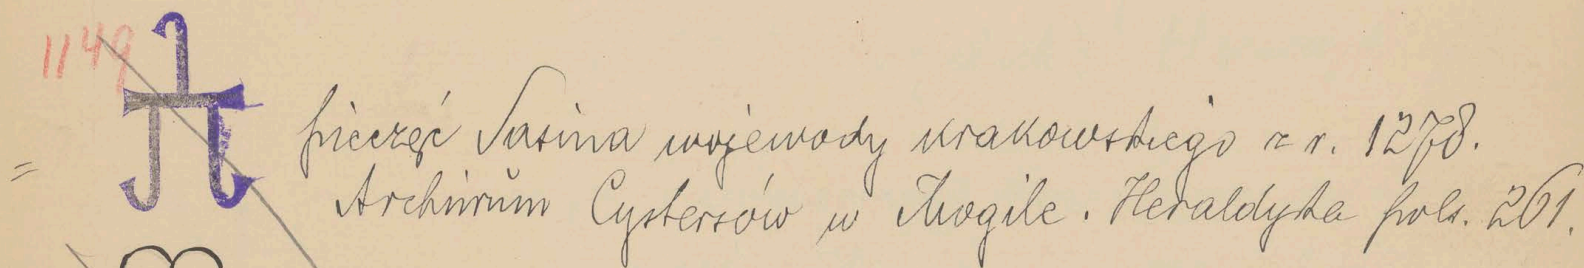 1149
pieczęć Sasina wojewody krakowskiego z r. 1278.
= Archivum Cystersów w Mogile. Heraldyka pols. 261.